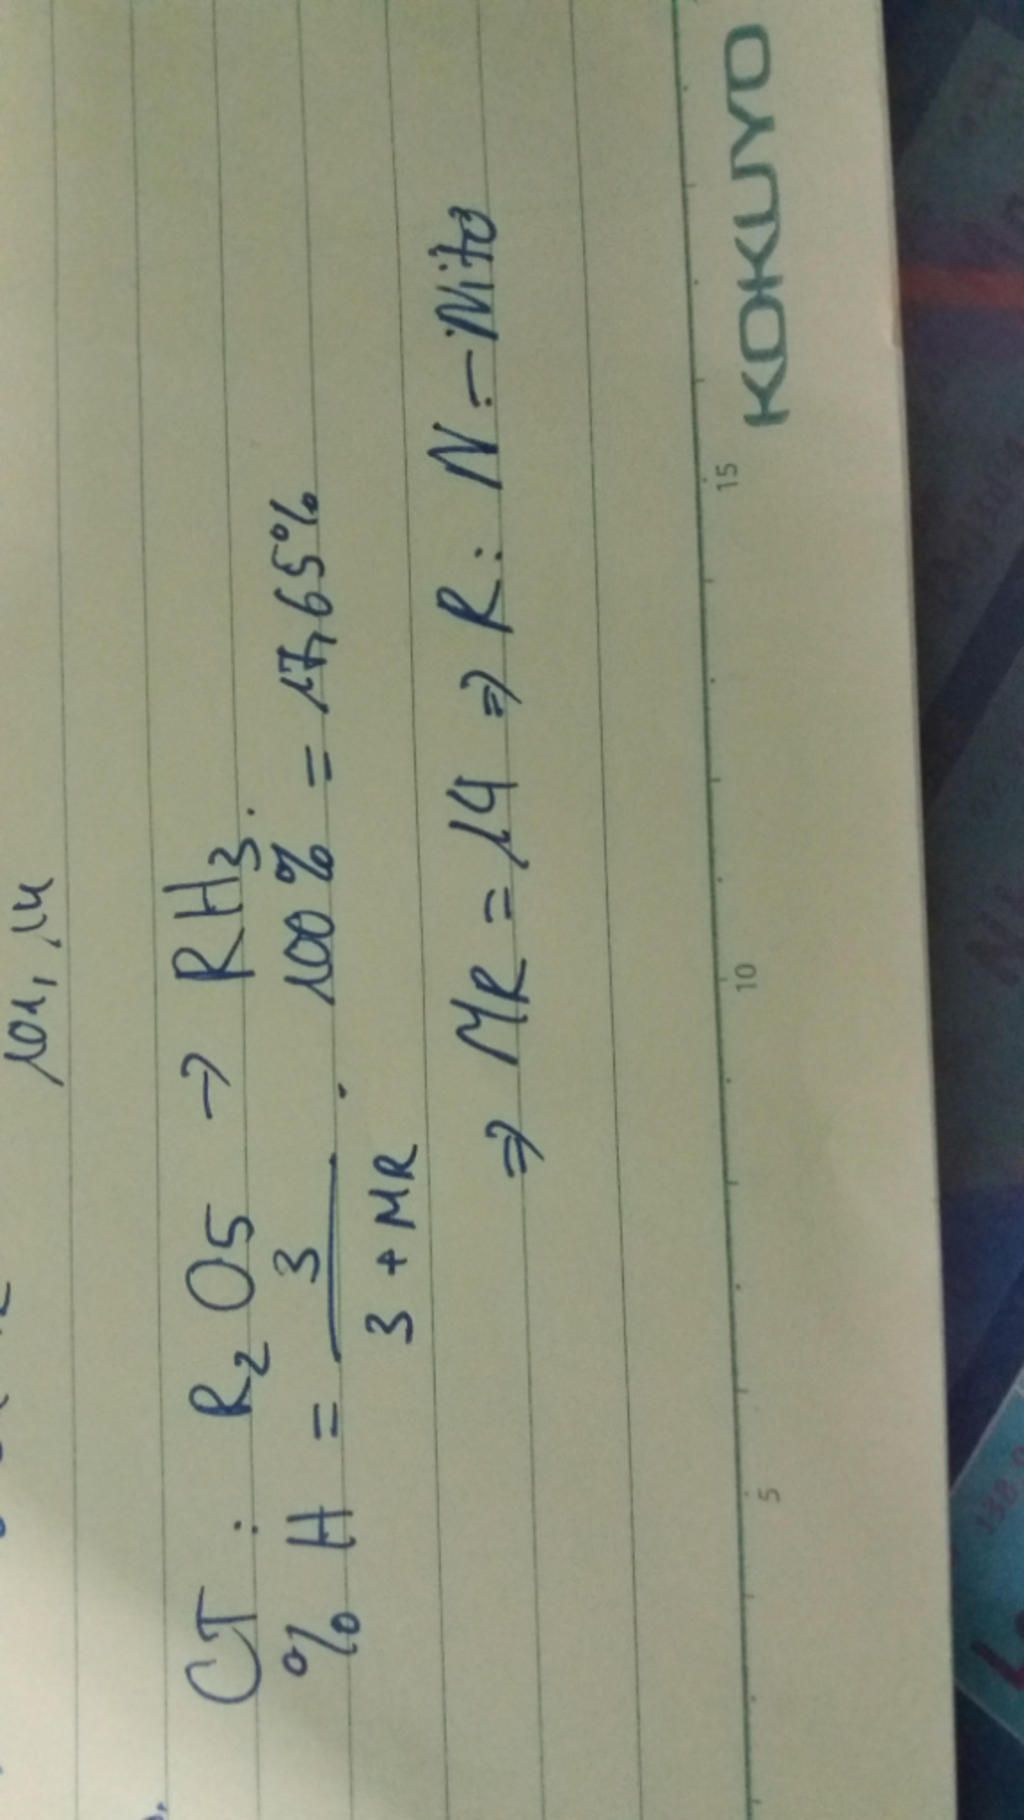 101,14
CT: R2O5 → RH3.
% H = 3 / 3 + MR . 100% = 17,65%
⇒ MR = 14 ⇒ R: N - Nito
5 10 15
KOKUYO